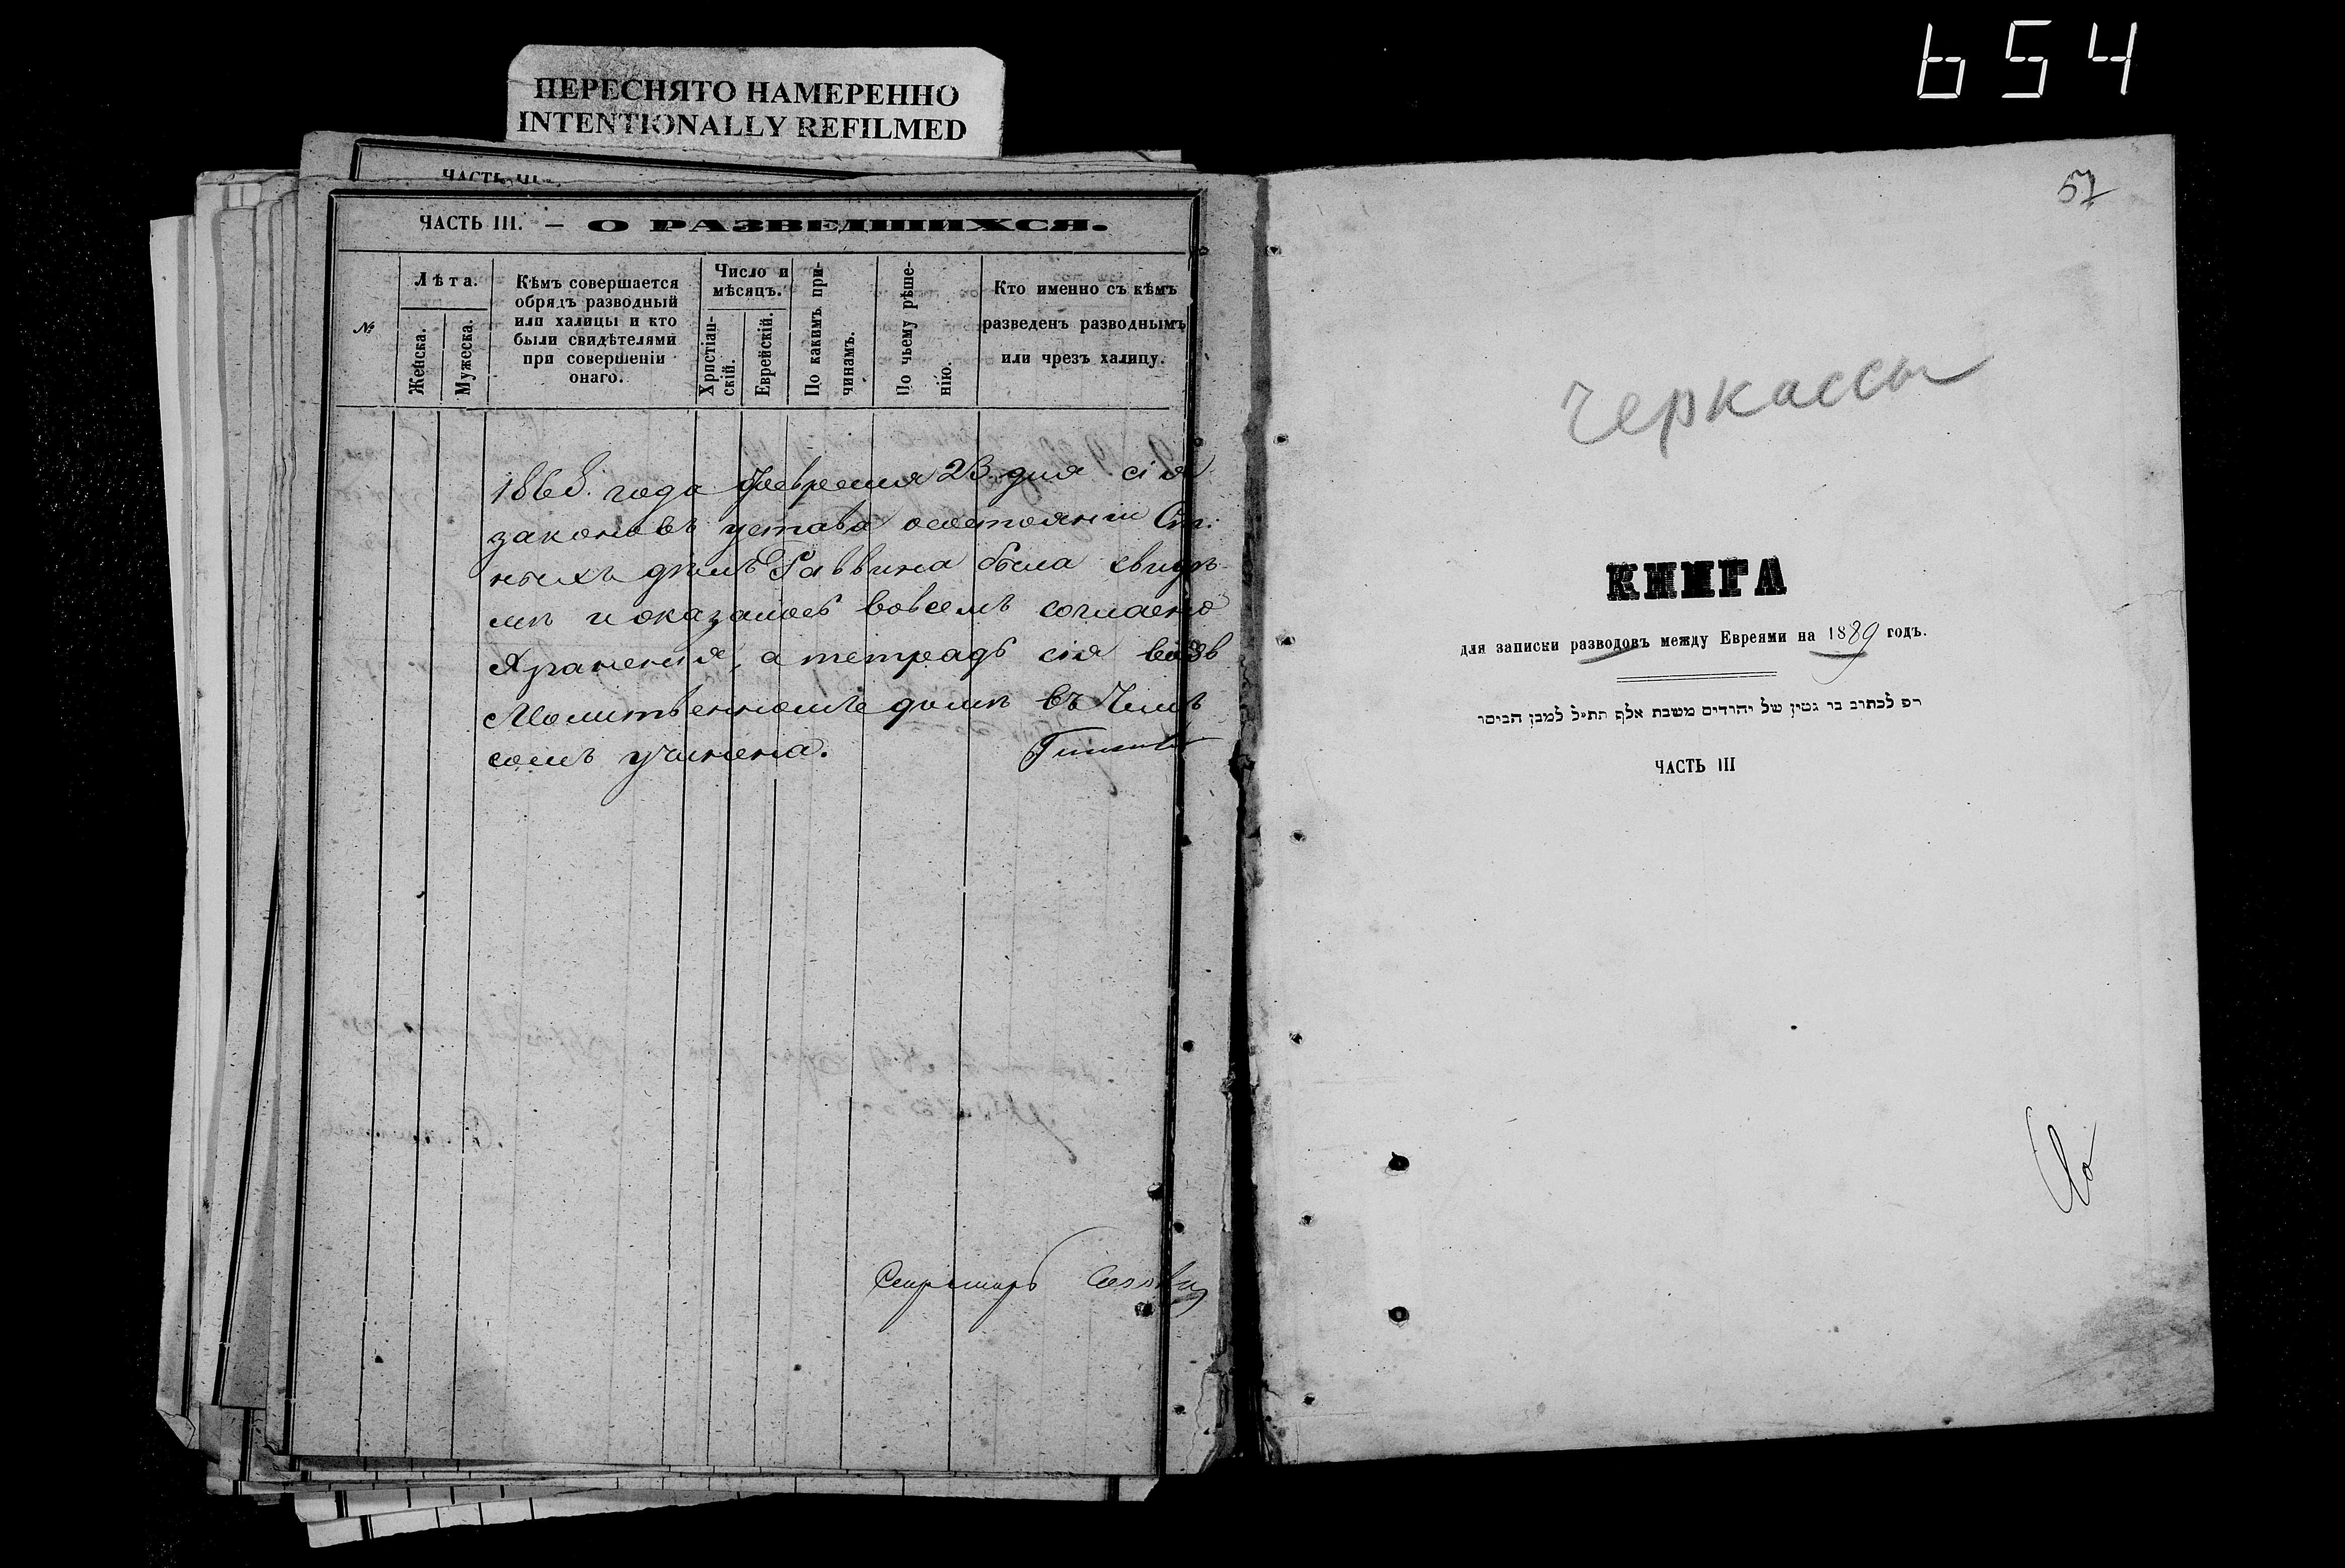 654
ПЕРЕСНЯТО НАМЕРЕННО
INTENTIONALLY REFILMED
ЧАСТЬ III.
ЧАСТЬ III. — О РАЗВЕДШИХСЯ.
№
Лѣта.
Женска.
Мужеска.
Кѣмъ совершается
обрядъ разводный
или халицы и кто
были свидѣтелями
при совершеніи
онаго.
Число и
мѣсяцъ.
Христіан-
скій.
Еврейскій.
По какимъ при-
чинамъ.
По чьему рѣше-
нію.
Кто именно съ кѣмъ
разведенъ разводнымъ
или чрезъ халицу.
1868. года Февраля 23 дня сія
законовъ устава о состояніи
ныхъ дѣлъ Раввина была свидѣ
и оказалось вовсемъ согласно
Храненія, а тетрадь сія
Молитвенномъ домѣ въ
семъ учинена.
Секретарь
57
Черкассы
КНИГА
для записки разводовъ между Евреями на 1889 годъ.
רפ לכתוב בו גטין של יהודים משבת אלף תת״ל למבן הביסו
ЧАСТЬ III